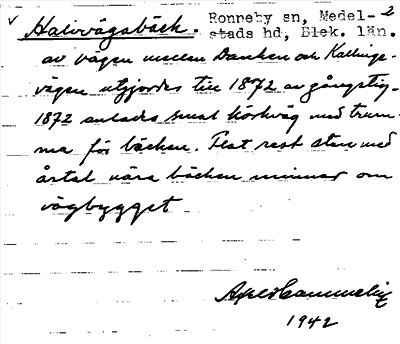 v Halvvägsbäck. Ronneby sn, Medel- 2
stads hd, Blek. län.
av vägen mellan Danken och Kallinge-
vägen utgjordes till 1872 av gångstig-
1872 anlades smal körväg med trum-
ma för bäcken. Fest rest sten med
årtal nära bäcken minner om
vägbygget
Axel
1942